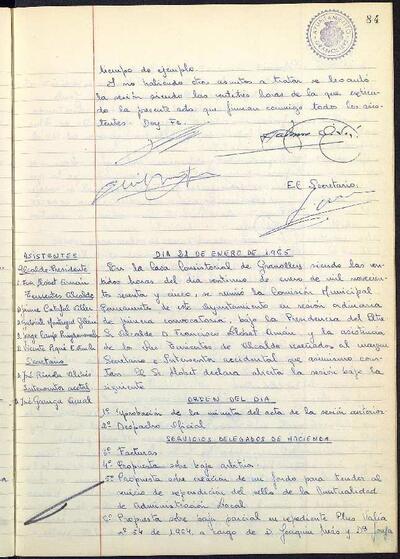 84
tiempo de ejemplo.
Y no habiendo otros asuntos a tratar se levantó
la sesión siendo las veintitrés horas de la que extien-
do la presente acta que firman conmigo todos los asis-
tentes. Doy Fe.
El Secretario
ASISTENTES
Alcalde-Presidente
Tenientes Alcalde
Secretario
DIA 21 DE ENERO DE 1965
En la Casa Consistorial de Granollers siendo las vein-
tidos horas del día veintiuno de enero de mil novecien-
tos sesenta y cinco, se reunió la Comisión Municipal
Permanente de este Ayuntamiento en sesión ordinaria
de primera convocatoria, bajo la Presidencia del Iltre
Sr. Alcalde D. Francisco Llobet Arnán y la asistencia
de los Sres Tenientes de Alcalde reseñados al margen
Secretario e Interventor accidental que asimismo cons-
tan. El Sr. Llobet declara abierta la sesión bajo la
siguiente
ORDEN DEL DIA
1º Aprobación de la minuta del acta de la sesión anterior.
2º Despacho Oficial
SERVICIOS DELEGADOS DE HACIENDA
3º Facturas
4º Propuesta sobre baja arbitrios
5º Propuesta sobre creación de un fondo para atender al
servicio de expendición del sello de la Mutualidad
de Administración Local
6º Propuesta sobre baja parcial en expediente Plus Valía
nº 54 de 1964, a cargo de D. Joaquín y Dª Josefa